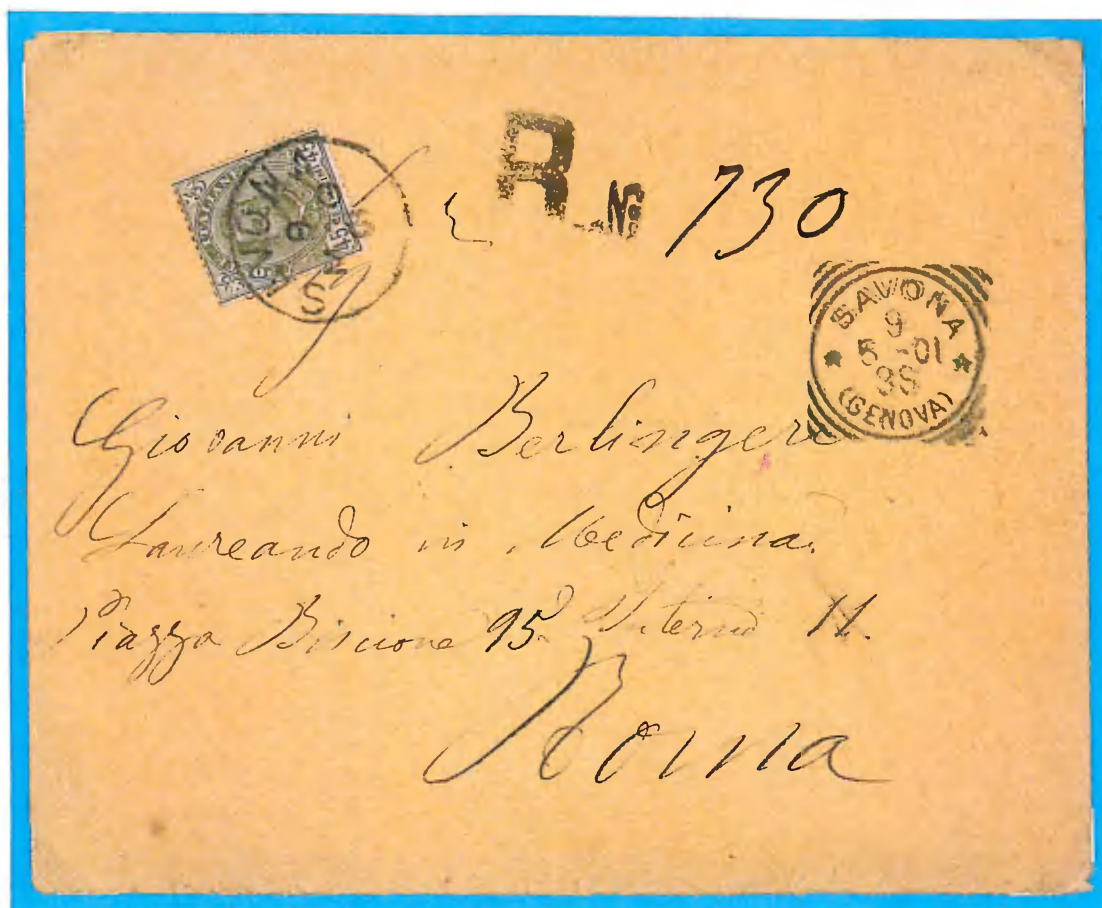 R. No 730
SAVONA
9
5 - 01
99
(GENOVA)
Giovanni Berlingeri
Laureando in Medicina.
Piazza Biscione 95 Interno 11.
Roma
45